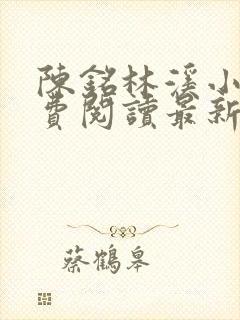 陳銘林溪小
費閱讀最新
蔡鶴皋